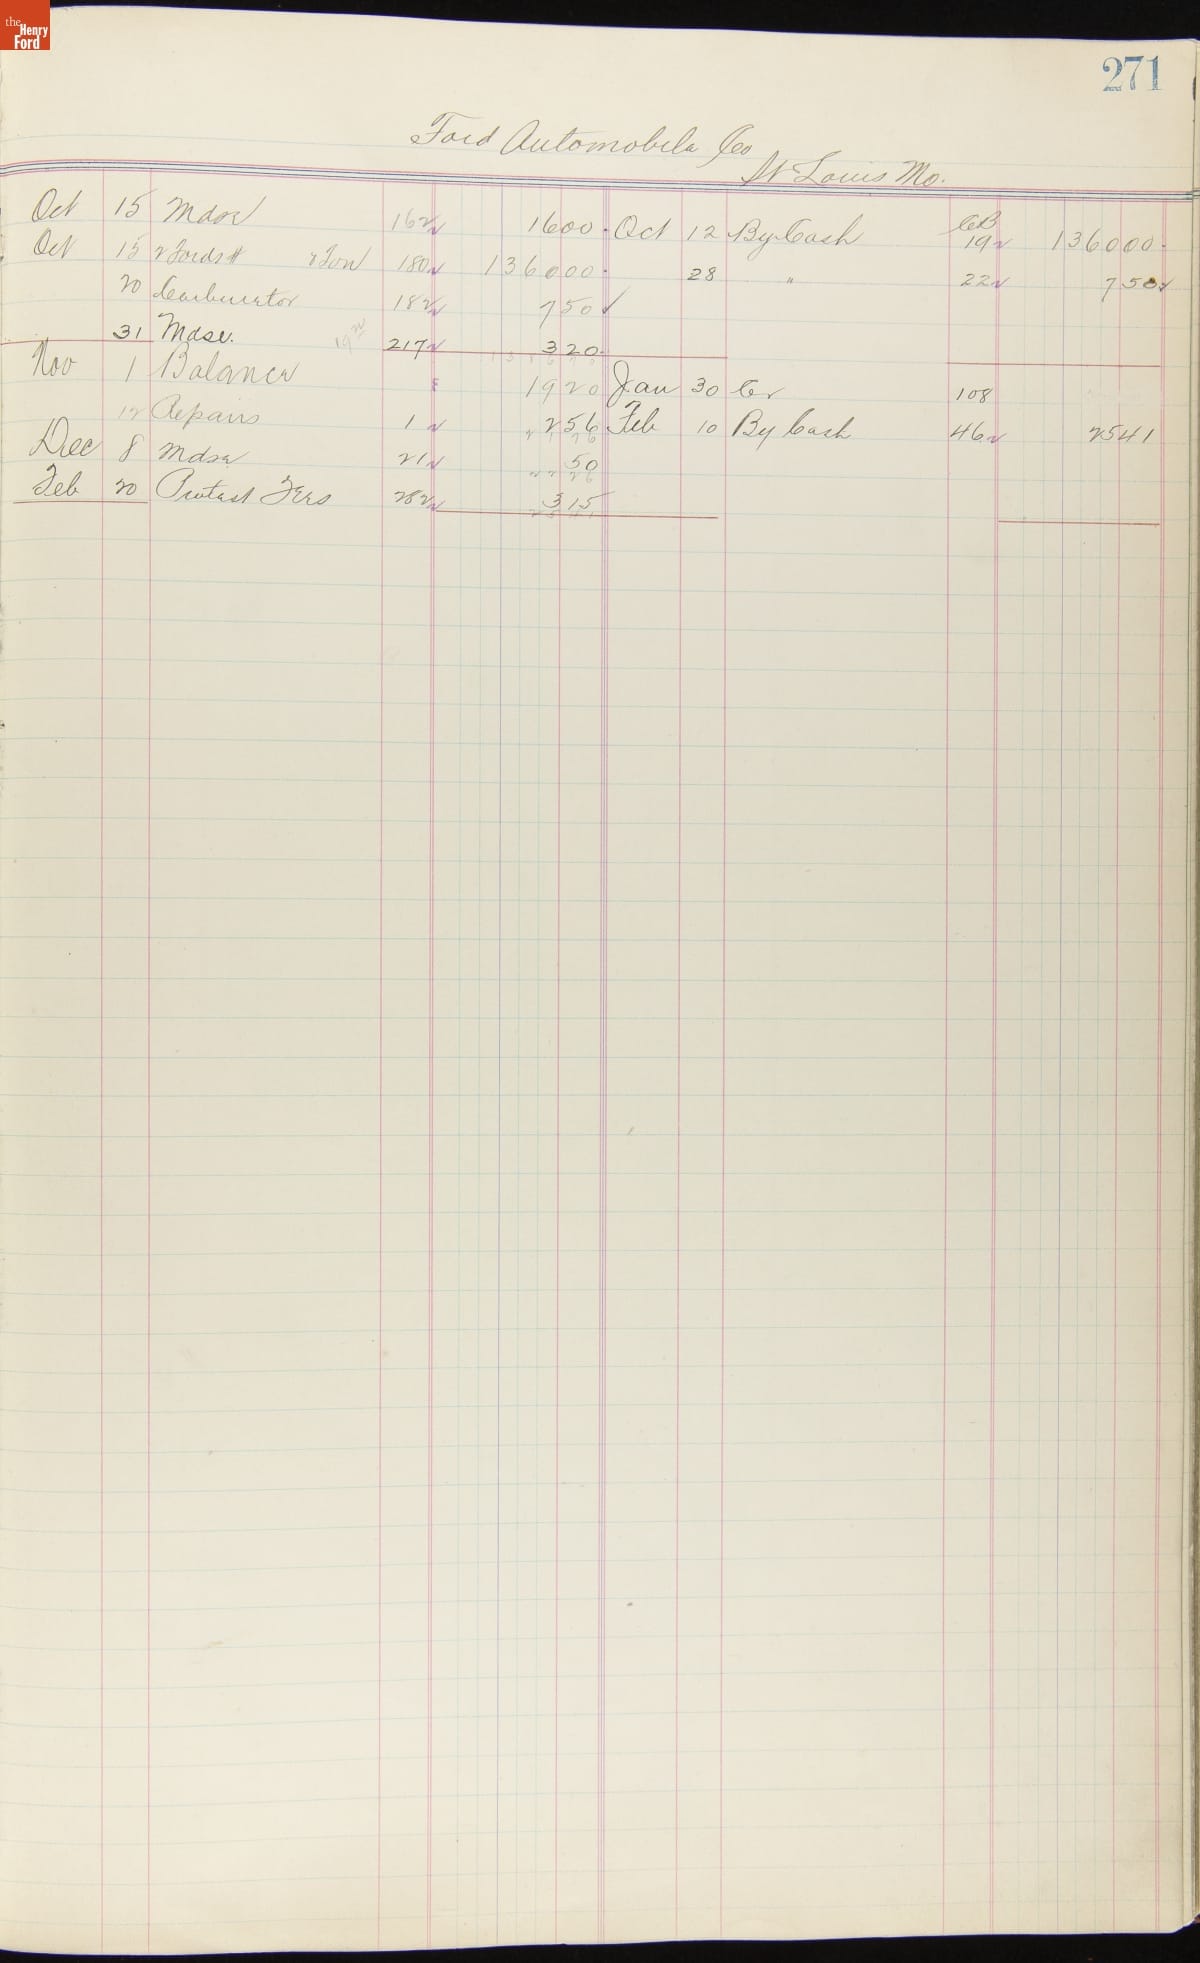 the Henry Ford
271
Ford Automobile Co
St Louis Mo.
Oct 15 Mdse 162 16 00 Oct 12 By Cash CB 19 1360 00
Oct 15 2 Fords # 180 1360 00 28 " 22 7 50
20 Carburetor 182 7 50
31 Mdse. 217 3 20
Nov 1 Balance 19 20 Jan 30 Cr 108
12 Repairs 1 2 56 Feb 10 By Cash 46 25 41
Dec 8 Mdse 21 50
Feb 20 Protest Fees 282 3 15